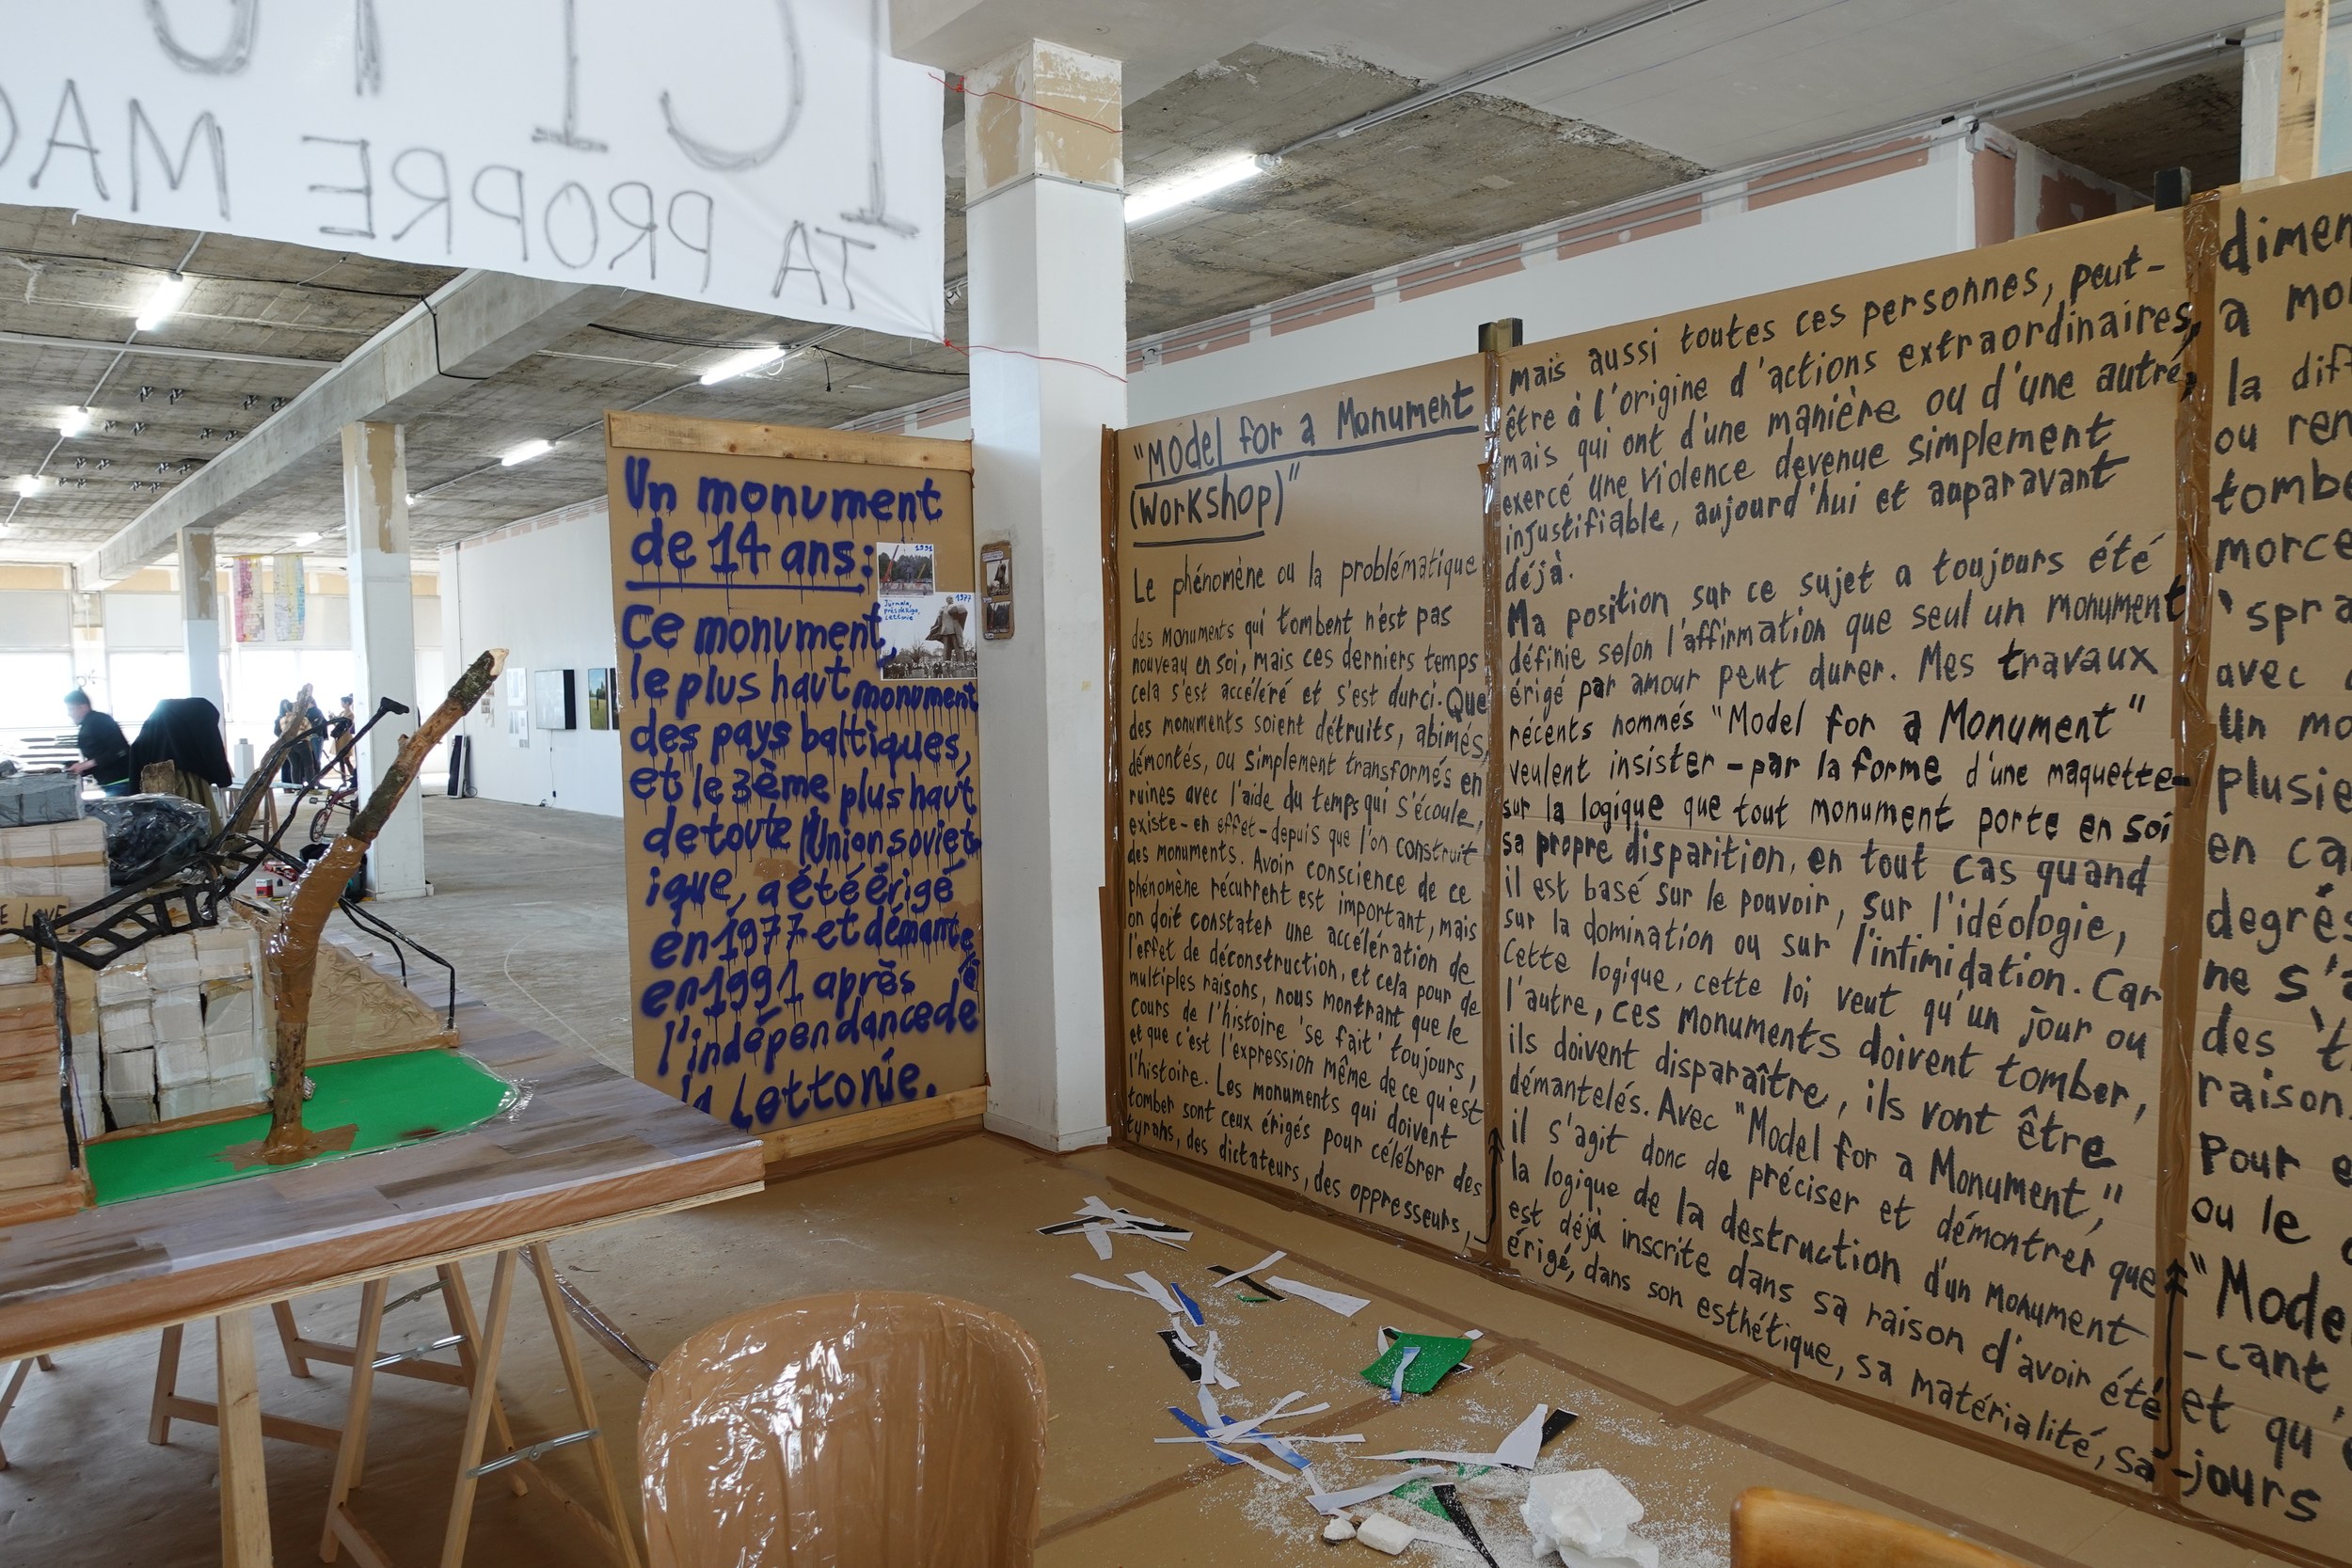 ICI TU
TA PROPRE MAQ
Un monument
de 14 ans:
Ce monument,
le plus haut monument
des pays baltiques,
et le 3ème plus haut
de toute l'Union soviét-
ique, a été érigé
en 1977 et démantelé
en 1991 après
l'indépendance de
la Lettonie.
1991
Jūrmala,
près de Riga,
Lettonie
1977
E LOVE
"Model for a Monument
(Workshop)"
Le phénomène ou la problématique
des monuments qui tombent n'est pas
nouveau en soi, mais ces derniers temps
cela s'est accéléré et s'est durci. Que
des monuments soient détruits, abimés,
démontés, ou simplement transformés en
ruines avec l'aide du temps qui s'écoule,
existe-en effet-depuis que l'on construit
des monuments. Avoir conscience de ce
phénomène récurrent est important, mais
on doit constater une accélération de
l'effet de déconstruction, et cela pour de
multiples raisons, nous montrant que le
cours de l'histoire 'se fait' toujours,
et que c'est l'expression même de ce qu'est
l'histoire. Les monuments qui doivent
tomber sont ceux érigés pour célébrer des
tyrans, des dictateurs, des oppresseurs,
mais aussi toutes ces personnes, peut-
être à l'origine d'actions extraordinaires,
mais qui ont d'une manière ou d'une autre,
exercé une violence devenue simplement
injustifiable, aujourd'hui et auparavant
déjà.
Ma position sur ce sujet a toujours été
définie selon l'affirmation que seul un monument
érigé par amour peut durer. Mes travaux
récents nommés "Model for a Monument"
veulent insister -par la forme d'une maquette-
sur la logique que tout monument porte en soi
sa propre disparition, en tout cas quand
il est basé sur le pouvoir, sur l'idéologie,
sur la domination ou sur l'intimidation. Car
cette logique, cette loi veut qu'un jour ou
l'autre, ces monuments doivent tomber,
ils doivent disparaître, ils vont être
démantelés. Avec "Model for a Monument,"
il s'agit donc de préciser et démontrer que
la logique de la destruction d'un monument
est déjà inscrite dans sa raison d'avoir été
érigé, dans son esthétique, sa matérialité, sa
dimen
a mo
la diff
ou ren
tombe
morce
'spra
avec
un mo
plusie
en ca
degrés
ne s'a
des 't
raison
pour e
ou le
"Mode
-cant,
et qu'
-jours